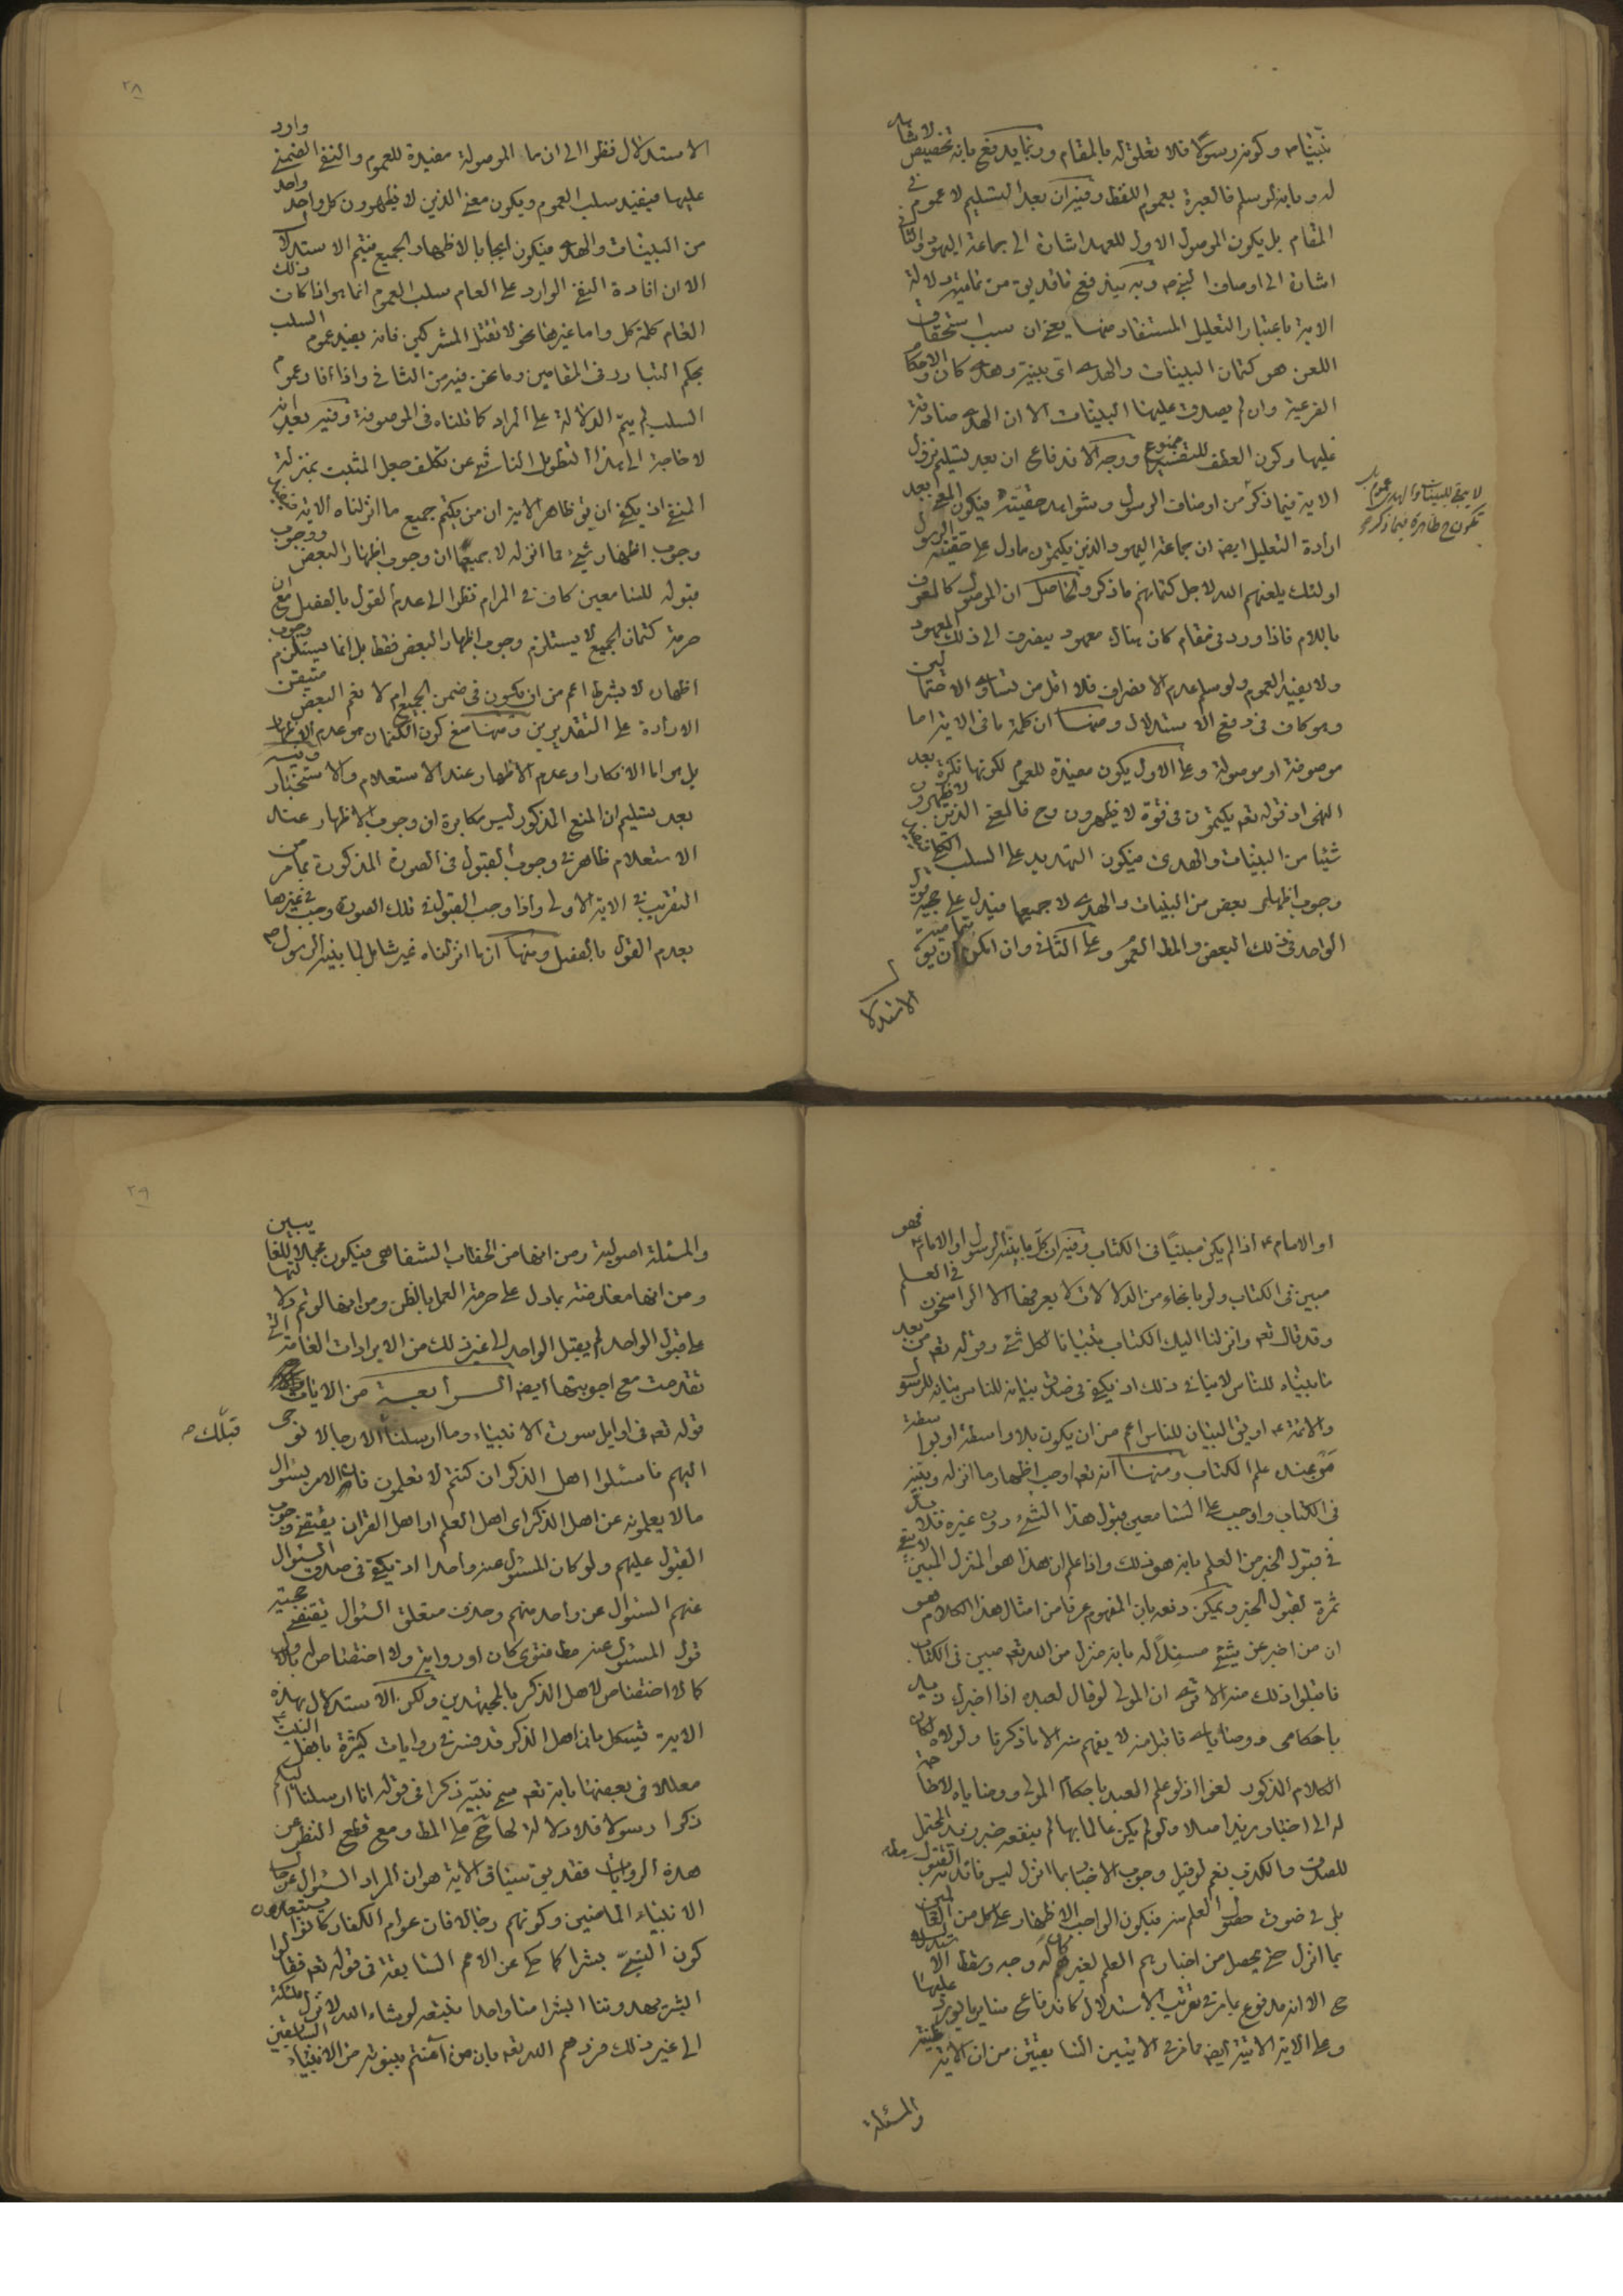 نبينا ص وكونه رسولا فلا تعلق له بالمقام وربما يدفع بانه تخصيص لا شاهد
له وبانه لو سلم فالعبرة بعموم اللفظ وفيه ان بعد التسليم لا عموم في
المقام بل يكون الموصول الاول للعهد اشارة الى جماعة اليهود والثاني
اشارة الى اوصاف النبي ص وبه يندفع ما قد يق من تمامية دلالة
الاية باعتبار التعليل المستفاد منها يعني ان سبب استحقاق
اللعن هو كتمان البينات والهدى اى بينة وهدى كان والاحكام
الفرعية وان لم يصدق عليها البينات الا ان الهدى صادقة
عليها وكون العطف للتفسير ممنوع ووجه الاندفاع ان بعد تسليم نزول
الاية فيما ذكر من اوصاف الرسول وشواهد حقيته فيكون المعنى بعد
ارادة التعليل ايضا ان جماعة اليهود الذين يكتمون ما دل على حقية الرسول
اولئك يلعنهم الله لاجل كتمانهم ما ذكر والحاصل ان الموصول كالمعرف
باللام فاذا ورد في مقام كان هناك معهود ينصرف الى ذلك المعهود
ولا يفيد العموم ولو سلم عدم الانصراف فلا اقل من تساوى الاحتمالين
وهو كاف في دفع الاستدلال ومنها ان كلمة ما في الاية اما
موصوفة او موصولة وعلى الاول يكون مفيدة للعموم لكونها نكرة بعد
النهى اذ قوله تعم يكتمون في قوة لا يظهرون وح فالمعنى الذين لا يظهرون
شيئا من البينات والهدى فيكون التهديد على السلب الكلى
وجوب اظهار بعض من البينات والهدى لا جميعها فيدل على حجية قول
الواحد في ذلك البعض والمط العموم وعلى الثاني وان امكن ان يكون تمامية
الاستدلا
لا يبقى للبينات والهدى عموم بل
تكون ح ظاهرة فيما ذكر ح
٢٨
الاستدلال نظرا الى ان ما الموصولة مفيدة للعموم والنفى الضمنى وارد
عليها فيفيد سلب العموم ويكون معنى الذين لا يظهرون كل واحد واحد
من البينات والهدى فيكون ايجابا لاظهار الجميع فيتم الاستدلال
الا ان افادة النفى الوارد على العام سلب العموم انما هو اذا كان ذلك
العام كلمة كل واما غيرها نحو لا تقتل المشركين فانه يفيد عموم السلب
بحكم التبادر في المقامين وما نحن فيه من الثاني واذا افاد عموم
السلب لم يتم الدلالة على المراد كما قلناه في الموصوفة وفيه بعد انه
لا حاجة الى هذا التطويل الناشئ عن تكلف جعل المثبت بمنزلة
المنفى اذ يكفى ان يق ظاهر الاية ان من يكتم جميع ما انزلناه الاية
وجوب اظهار شئ مما انزله لا جميعها ان وجوب اظهار البعض ووجوب
قبوله للسامعين كاف في المرام نظرا الى عدم القول بالفصل مع ان
حرمة كتمان الجميع لا يستلزم وجوب اظهار البعض فقط بل انما يستلزم وجوب
اظهاره لا بشرط اعم من ان يكون في ضمن الجميع ام لا نعم البعض متيقن
الارادة على التقديرين ومنها منع كون الكتمان هو عدم الاظهار
بل هو اما الانكار او عدم الاظهار عند الاستعلام والاستخبار وفيه
بعد تسليم ان المنع المذكور ليس مكابرة ان وجوب الاظهار عند
الاستعلام ظاهر في وجوب القبول في الصورة المذكورة بما مر من
التقريب في الاية الاولى واذا وجب القبول في تلك الصورة وجب في غيرها
بعدم القول بالفصل ومنها ان ما انزلناه غير شامل لما يبينه الرسول ص
او الامام ع اذا لم يكن مبينا في الكتاب وفيه ان كل ما يبينه الرسول او الامام ع فهو
مبين في الكتاب ولو بانحاء من الدلالات لا يعرفها الا الراسخون في العلم
وقد قال تعم وانزلنا اليك الكتاب تبيانا لكل شئ وقوله تعم من بعد
ما بيناه للناس لا ينافي ذلك اذ يكفى في صدق بيانه للناس بيانه للرسول
والائمة ع او يق البيان للناس اعم من ان يكون بلا واسطة او بواسطة
من عنده علم الكتاب ومنها انه تعم اوجب اظهار ما انزله وبينه
في الكتاب واوجب على السامعين قبول هذا الشئ دون غيره فلا بد
في قبول الخبر من العلم بانه هو ذلك واذا علم ان هذا هو المنزل المبين لا يبقى
ثمرة لقبول الخبر ويمكن دفعه بان المفهوم عرفا من امثال هذا الكلام هو
ان من اخبر عن شئ مسندا له بانه منزل من الله تعم مبين في الكتاب
فاقبلوا ذلك منه الا ترى ان المولى لو قال لعبده اذا اخبرك زيد
باحكامى ووصاياى فاقبل منه لا يفهم منه الا ما ذكرنا ولولاه لكان
الكلام المذكور لغوا اذ لو علم العبد باحكام المولى ووصاياه لا حاجة
له الى اخبار زيد اصلا ولو لم يكن عالما بها لم ينفعه خبر زيد المحتمل
للصدق والكذب نعم لو قيل وجوب الاخبار بما انزل ليس فائدته القبول مط
بل في صورة حصول العلم منه فيكون الواجب الاظهار على كل من العالمين
بما انزل حتى يحصل من اخبارهم العلم لغيرهم كان له وجه وسقط الاستدلال
ح الا انه مدفوع بما مر في تقريب الاستدلال كاندفاع ساير ما يورد عليها
وعلى الاية الاتية ايضا مما مر في الايتين السابقتين من ان الاية ظنية
والمسئلة
٢٩
والمسئلة اصولية ومن انها من الخطاب الشفاهى فيكون مجملا للغائبين
ومن انها معارضة بما دل على حرمة العمل بالظن ومن انها لو تم دلالتها
على قبول الواحد لم يقبل الواحد الى غير ذلك من الايرادات العامة التى
تقدمت مع اجوبتها ايضا الرابعة من الايات
قوله تعم في اوايل سورة الانبياء وما ارسلنا الا رجالا نوحى
قبلك ص
اليهم فاسئلوا اهل الذكر ان كنتم لا تعلمون فان الامر بسؤال
ما لا يعلمونه عن اهل الذكر اى اهل العلم او اهل القران يقتضى وجوب
القبول عليهم ولو كان المسئول عنه واحدا اذ يكفى في صدق السؤال
عنهم السؤال عن واحد منهم وحذف متعلق السؤال يقتضى حجية
قول المسئول عنه مط فتوى كان او رواية ولا اختصاص له بالاول
كما لا اختصاص لاهل الذكر بالمجتهدين ولكن الاستدلال بهذه
الاية مشكل بان اهل الذكر قد فسر في روايات كثيرة باهل البيت ع
معللا في بعضها بانه تعم سمى نبيه ذكرا في قوله انا ارسلنا اليكم
ذكرا رسولا فلا دلالة لها ح على المط ومع قطع النظر عن
هذه الروايات فقد يق سياق الاية هو ان المراد السؤال عن حال
الانبياء الماضين وكونهم رجالا فان عوام الكفار كانوا يستبعدون
كون النبى بشرا كما حكى عن الامم السابقة في قوله تعم فقالوا
ابشر يهدوننا ابشرا منا واحدا نتبعه لو شاء الله لانزل ملئكة
الى غير ذلك فردهم الله تعم بان من آمنتم بنبوته من الانبياء السابقين